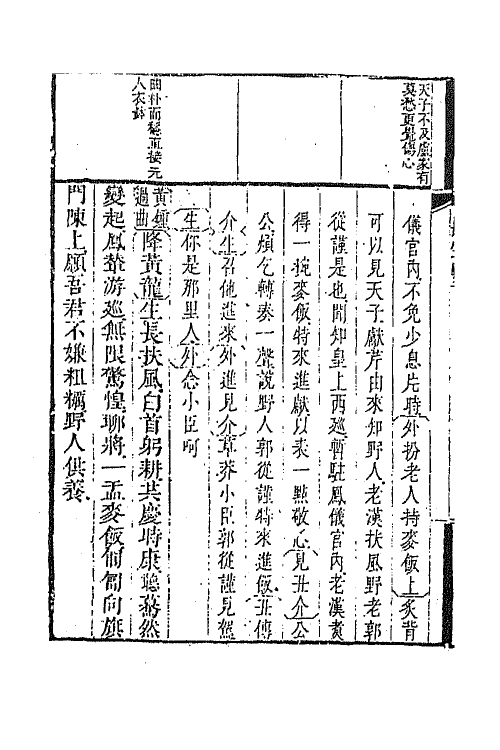 天子不及盧家有
莫愁更覺傷心
曲朴而穩直接元
人衣鉢
儀官內不免少息片時外扮老人持麥飯上炙背
可以見天子獻芹由來知野人老漢扶風野老郭
從謹是也聞知皇上西廵暫駐鳳儀官內老漢煮
得一椀麥飯特來進獻以表一點敬心見丑介公
公煩乞轉奏一聲說野人郭從謹特來進飯丑傳
介生召他進來外進見介草莽小臣郭從謹見駕
生你是那里人外念小臣呵
黃鐘過曲降黃龍生長扶風白首躬耕共慶時康聽驀然
變起鳳輦游廵無限驚惶聊將一盂麥飯匍匐向旗
門陳上願吾君不嫌粗糲野人供養